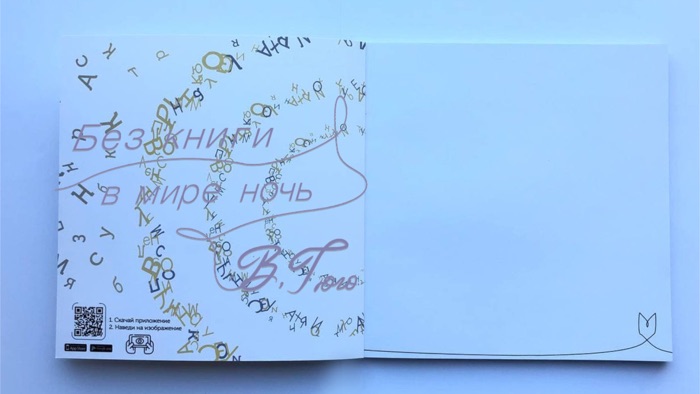 Без книги
в мире ночь
В. Гюго
1. Скачай приложение
2. Наведи на изображение